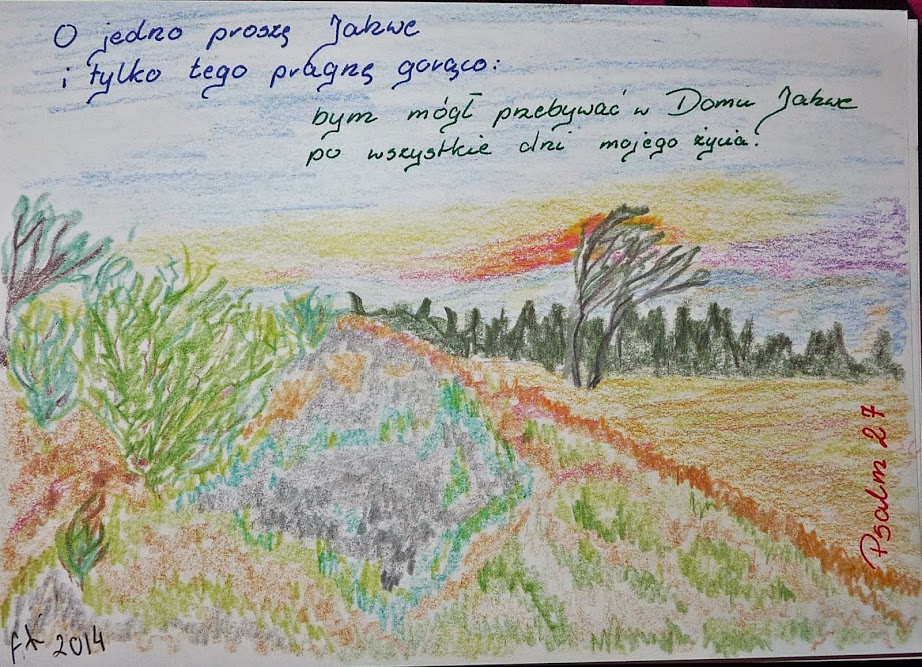 O jedno proszę Jahwe
i tylko tego pragnę gorąco:
bym mógł przebywać w Domu Jahwe
po wszystkie dni mojego życia.
Psalm 27
2014